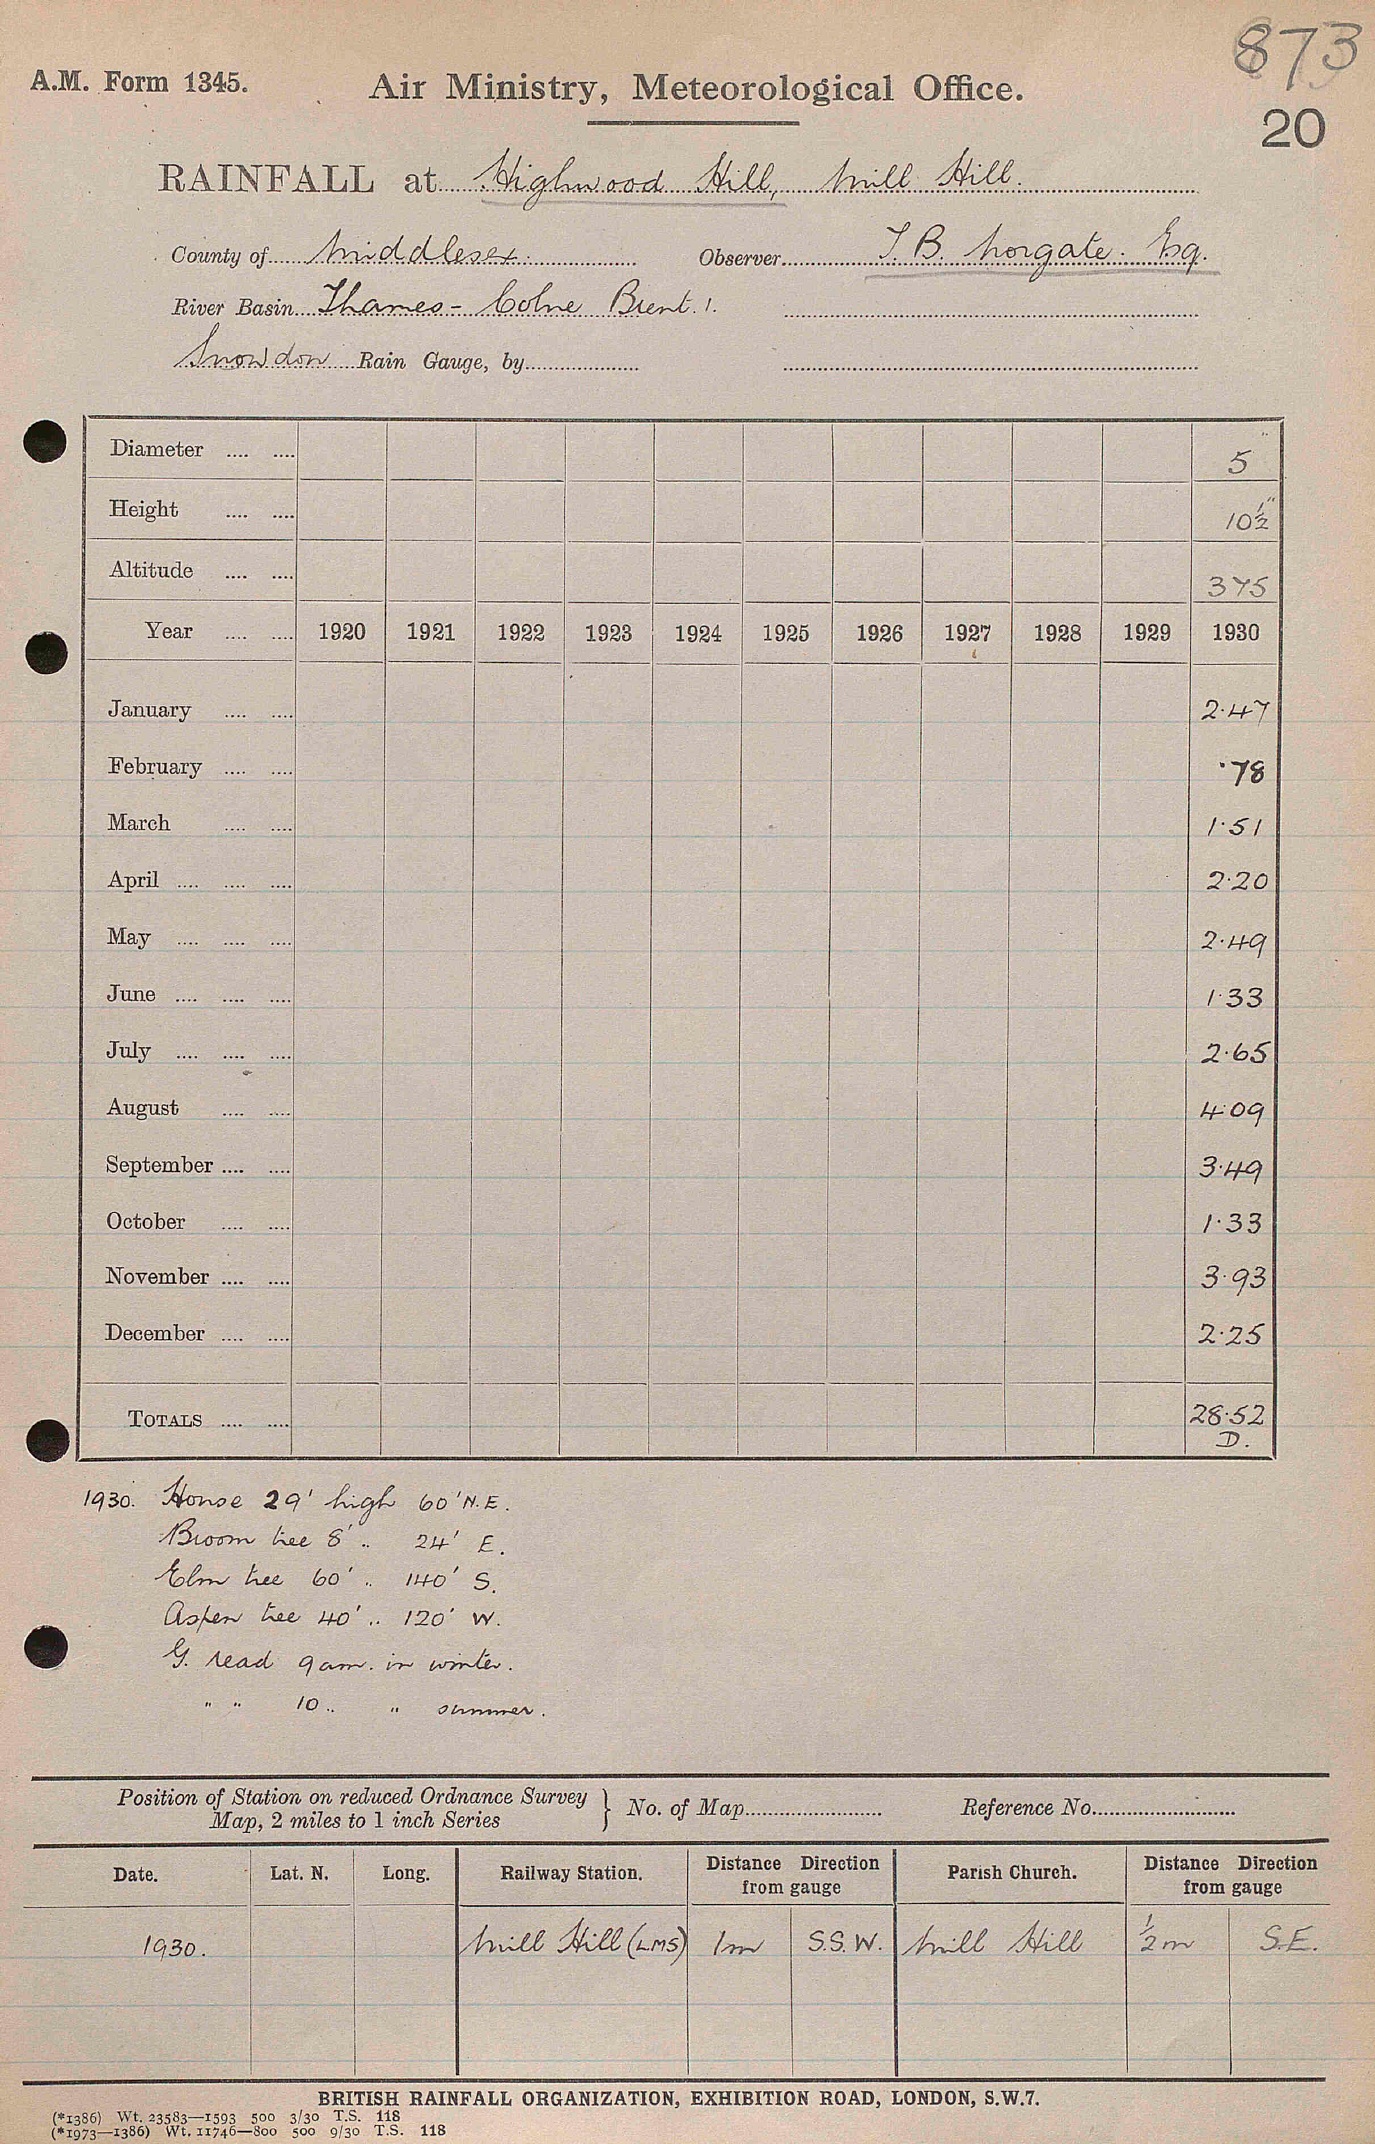 873
A.M. Form 1345.
Air Ministry, Meteorological Office.
20
RAINFALL at Highwood Hill, Mill Hill.
County of Middlesex. Observer T. B. Norgate. Esq.
River Basin Thames - Colne Brent. 1.
Snowdon Rain Gauge, by
Diameter 5"
Height 10½"
Altitude 375
Year 1920 1921 1922 1923 1924 1925 1926 1927 1928 1929 1930
January 2.47
February .78
March 1.51
April 2.20
May 2.49
June 1.33
July 2.65
August 4.09
September 3.49
October 1.33
November 3.93
December 2.25
TOTALS 28.52
D.
1930. House 29' high 60' N.E.
Broom tree 8' .. 24' E.
Elm tree 60' .. 140' S.
Aspen tree 40' .. 120' W.
G. read 9am. in winter.
" " 10 .. " summer.
Position of Station on reduced Ordnance Survey
Map, 2 miles to 1 inch Series } No. of Map Reference No.
Date. Lat. N. Long. Railway Station. Distance Direction from gauge Parish Church. Distance Direction from gauge
1930. Mill Hill (LMS) 1m S.S.W. Mill Hill ½m S.E.
BRITISH RAINFALL ORGANIZATION, EXHIBITION ROAD, LONDON, S.W.7.
(*1386) Wt. 23583—1593 500 3/30 T.S. 118
(*1973—1386) Wt. 11746—800 500 9/30 T.S. 118